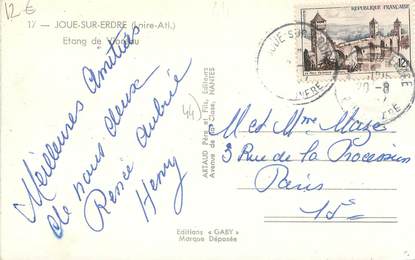 12 €
17 — JOUE-SUR-ERDRE (Loire-Atl.)
Etang de Vioreau
Meilleures amitiés
de nous deux
Renée Aubrée
Henry
44
ARTAUD Père et Fils, Editeurs
Avenue de la Close, NANTES
REPUBLIQUE FRANÇAISE
12F
JOUE-SUR-ERDRE
20-8
M et Mme Mazes
3 Rue de la Procession
Paris
15e
Editions « GABY »
Marque Déposée